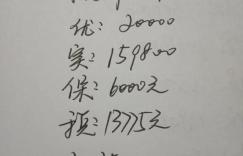 优：20000
实：159800
保：6000元
预：13775元